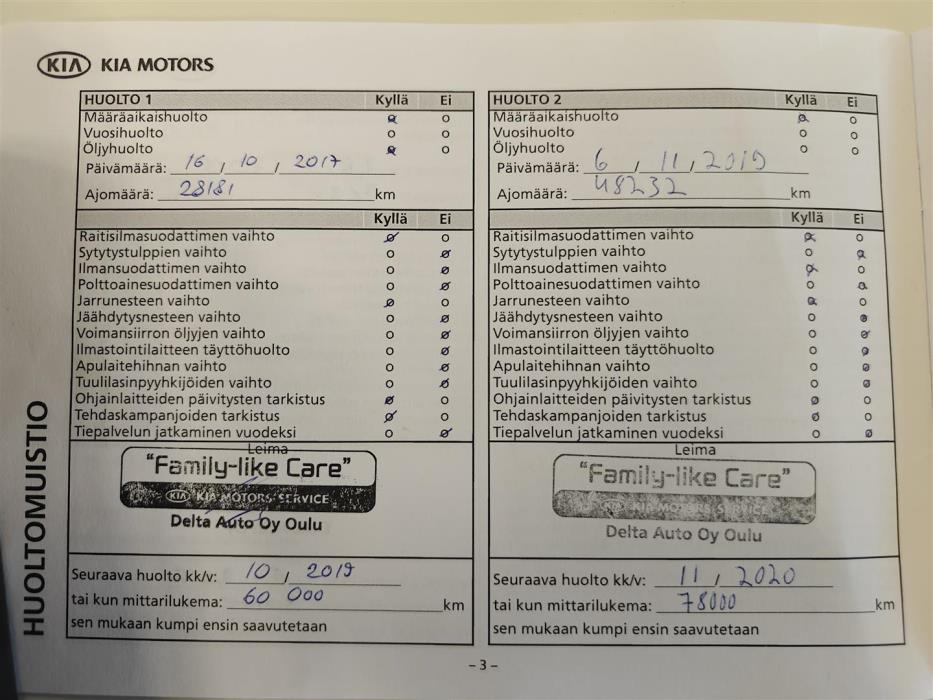 KIA KIA MOTORS
HUOLTO 1 Kyllä Ei
Määräaikaishuolto
Vuosihuolto
Öljyhuolto
Päivämäärä: 16 / 10 / 2017
Ajomäärä: 28181 km
Kyllä Ei
Raitisilmasuodattimen vaihto
Sytytystulppien vaihto
Ilmansuodattimen vaihto
Polttoainesuodattimen vaihto
Jarrunesteen vaihto
Jäähdytysnesteen vaihto
Voimansiirron öljyjen vaihto
Ilmastointilaitteen täyttöhuolto
Apulaitehihnan vaihto
Tuulilasinpyyhkijöiden vaihto
Ohjainlaitteiden päivitysten tarkistus
Tehdaskampanjoiden tarkistus
Tiepalvelun jatkaminen vuodeksi
Leima
"Family-like Care"
KIA KIA MOTORS SERVICE
Delta Auto Oy Oulu
Seuraava huolto kk/v: 10 / 2019
tai kun mittarilukema: 60 000 km
sen mukaan kumpi ensin saavutetaan
HUOLTO 2 Kyllä Ei
Määräaikaishuolto
Vuosihuolto
Öljyhuolto
Päivämäärä: 6 / 11 / 2019
Ajomäärä: 48232 km
Kyllä Ei
Raitisilmasuodattimen vaihto
Sytytystulppien vaihto
Ilmansuodattimen vaihto
Polttoainesuodattimen vaihto
Jarrunesteen vaihto
Jäähdytysnesteen vaihto
Voimansiirron öljyjen vaihto
Ilmastointilaitteen täyttöhuolto
Apulaitehihnan vaihto
Tuulilasinpyyhkijöiden vaihto
Ohjainlaitteiden päivitysten tarkistus
Tehdaskampanjoiden tarkistus
Tiepalvelun jatkaminen vuodeksi
Leima
"Family-like Care"
KIA MOTORS SERVICE
Delta Auto Oy Oulu
Seuraava huolto kk/v: 11 / 2020
tai kun mittarilukema: 78000 km
sen mukaan kumpi ensin saavutetaan
HUOLTOMUISTIO
– 3 –